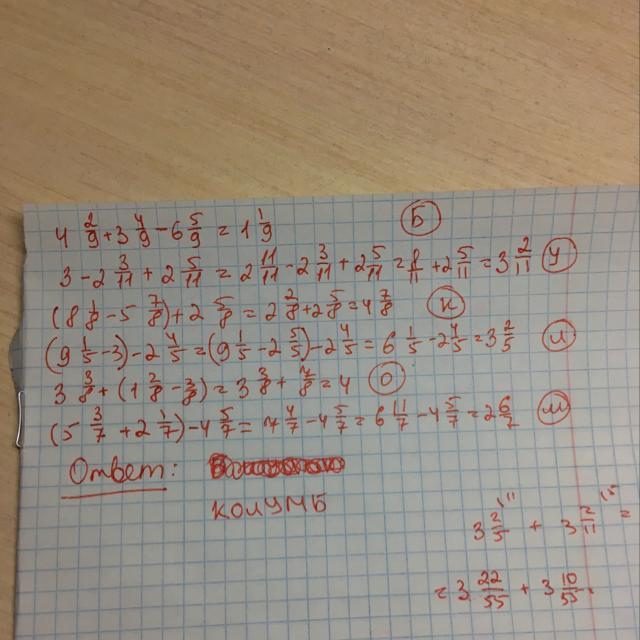 4 2/9 + 3 4/9 - 6 5/9 = 1 1/9 Б
3 - 2 3/11 + 2 5/11 = 2 11/11 - 2 3/11 + 2 5/11 = 8/11 + 2 5/11 = 3 2/11 У
(8 1/8 - 5 7/8) + 2 5/8 = 2 2/8 + 2 5/8 = 4 7/8 К
(9 1/5 - 3) - 2 4/5 = (9 1/5 - 2 5/5) - 2 4/5 = 6 1/5 - 2 4/5 = 3 2/5
3 3/8 + (1 2/8 - 3/8) = 3 3/8 + 7/8 = 4 О
(5 3/7 + 2 1/7) - 4 5/7 = 7 4/7 - 4 5/7 = 6 11/7 - 4 5/7 = 2 6/7
Ответ:
КОЛУМБ
3 2/5 + 3 2/11 =
= 3 22/55 + 3 10/55